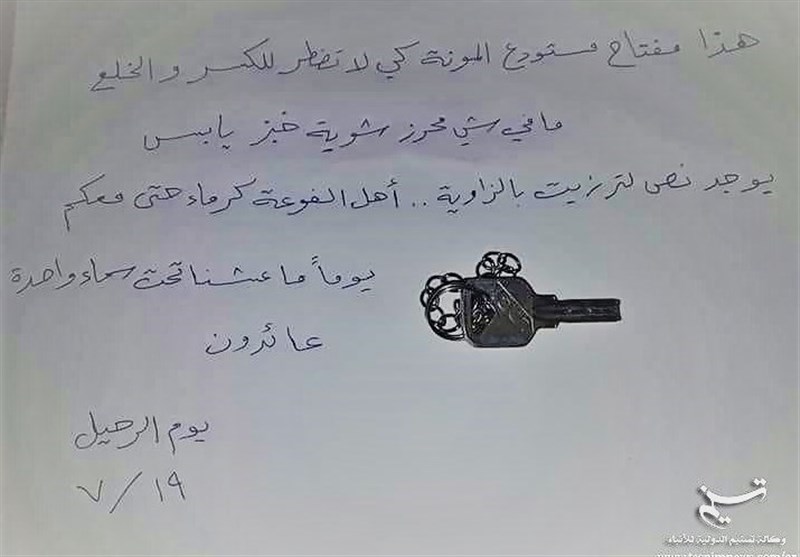 هذا مفتاح مستودع المونة كي لا تضطر للكسر والخلع
ما في شي محرز شوية خبز يابس
يوجد نص لتر زيت بالزاوية .. أهل الفوعة كرماء حتى معكم
يوماً ما عشنا تحت سماء واحدة
عائدون
يوم الرحيل
١٩/٧
تسنيم
وكالة تسنيم الدولية للأنباء